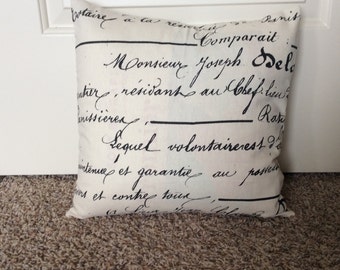 à la
Comparait :
Monsieur Joseph Delc
ntier, résidant au Chef-lieu
nissières,
Lequel volontairement d
intenue et garantie au posses
ers et contre tous,